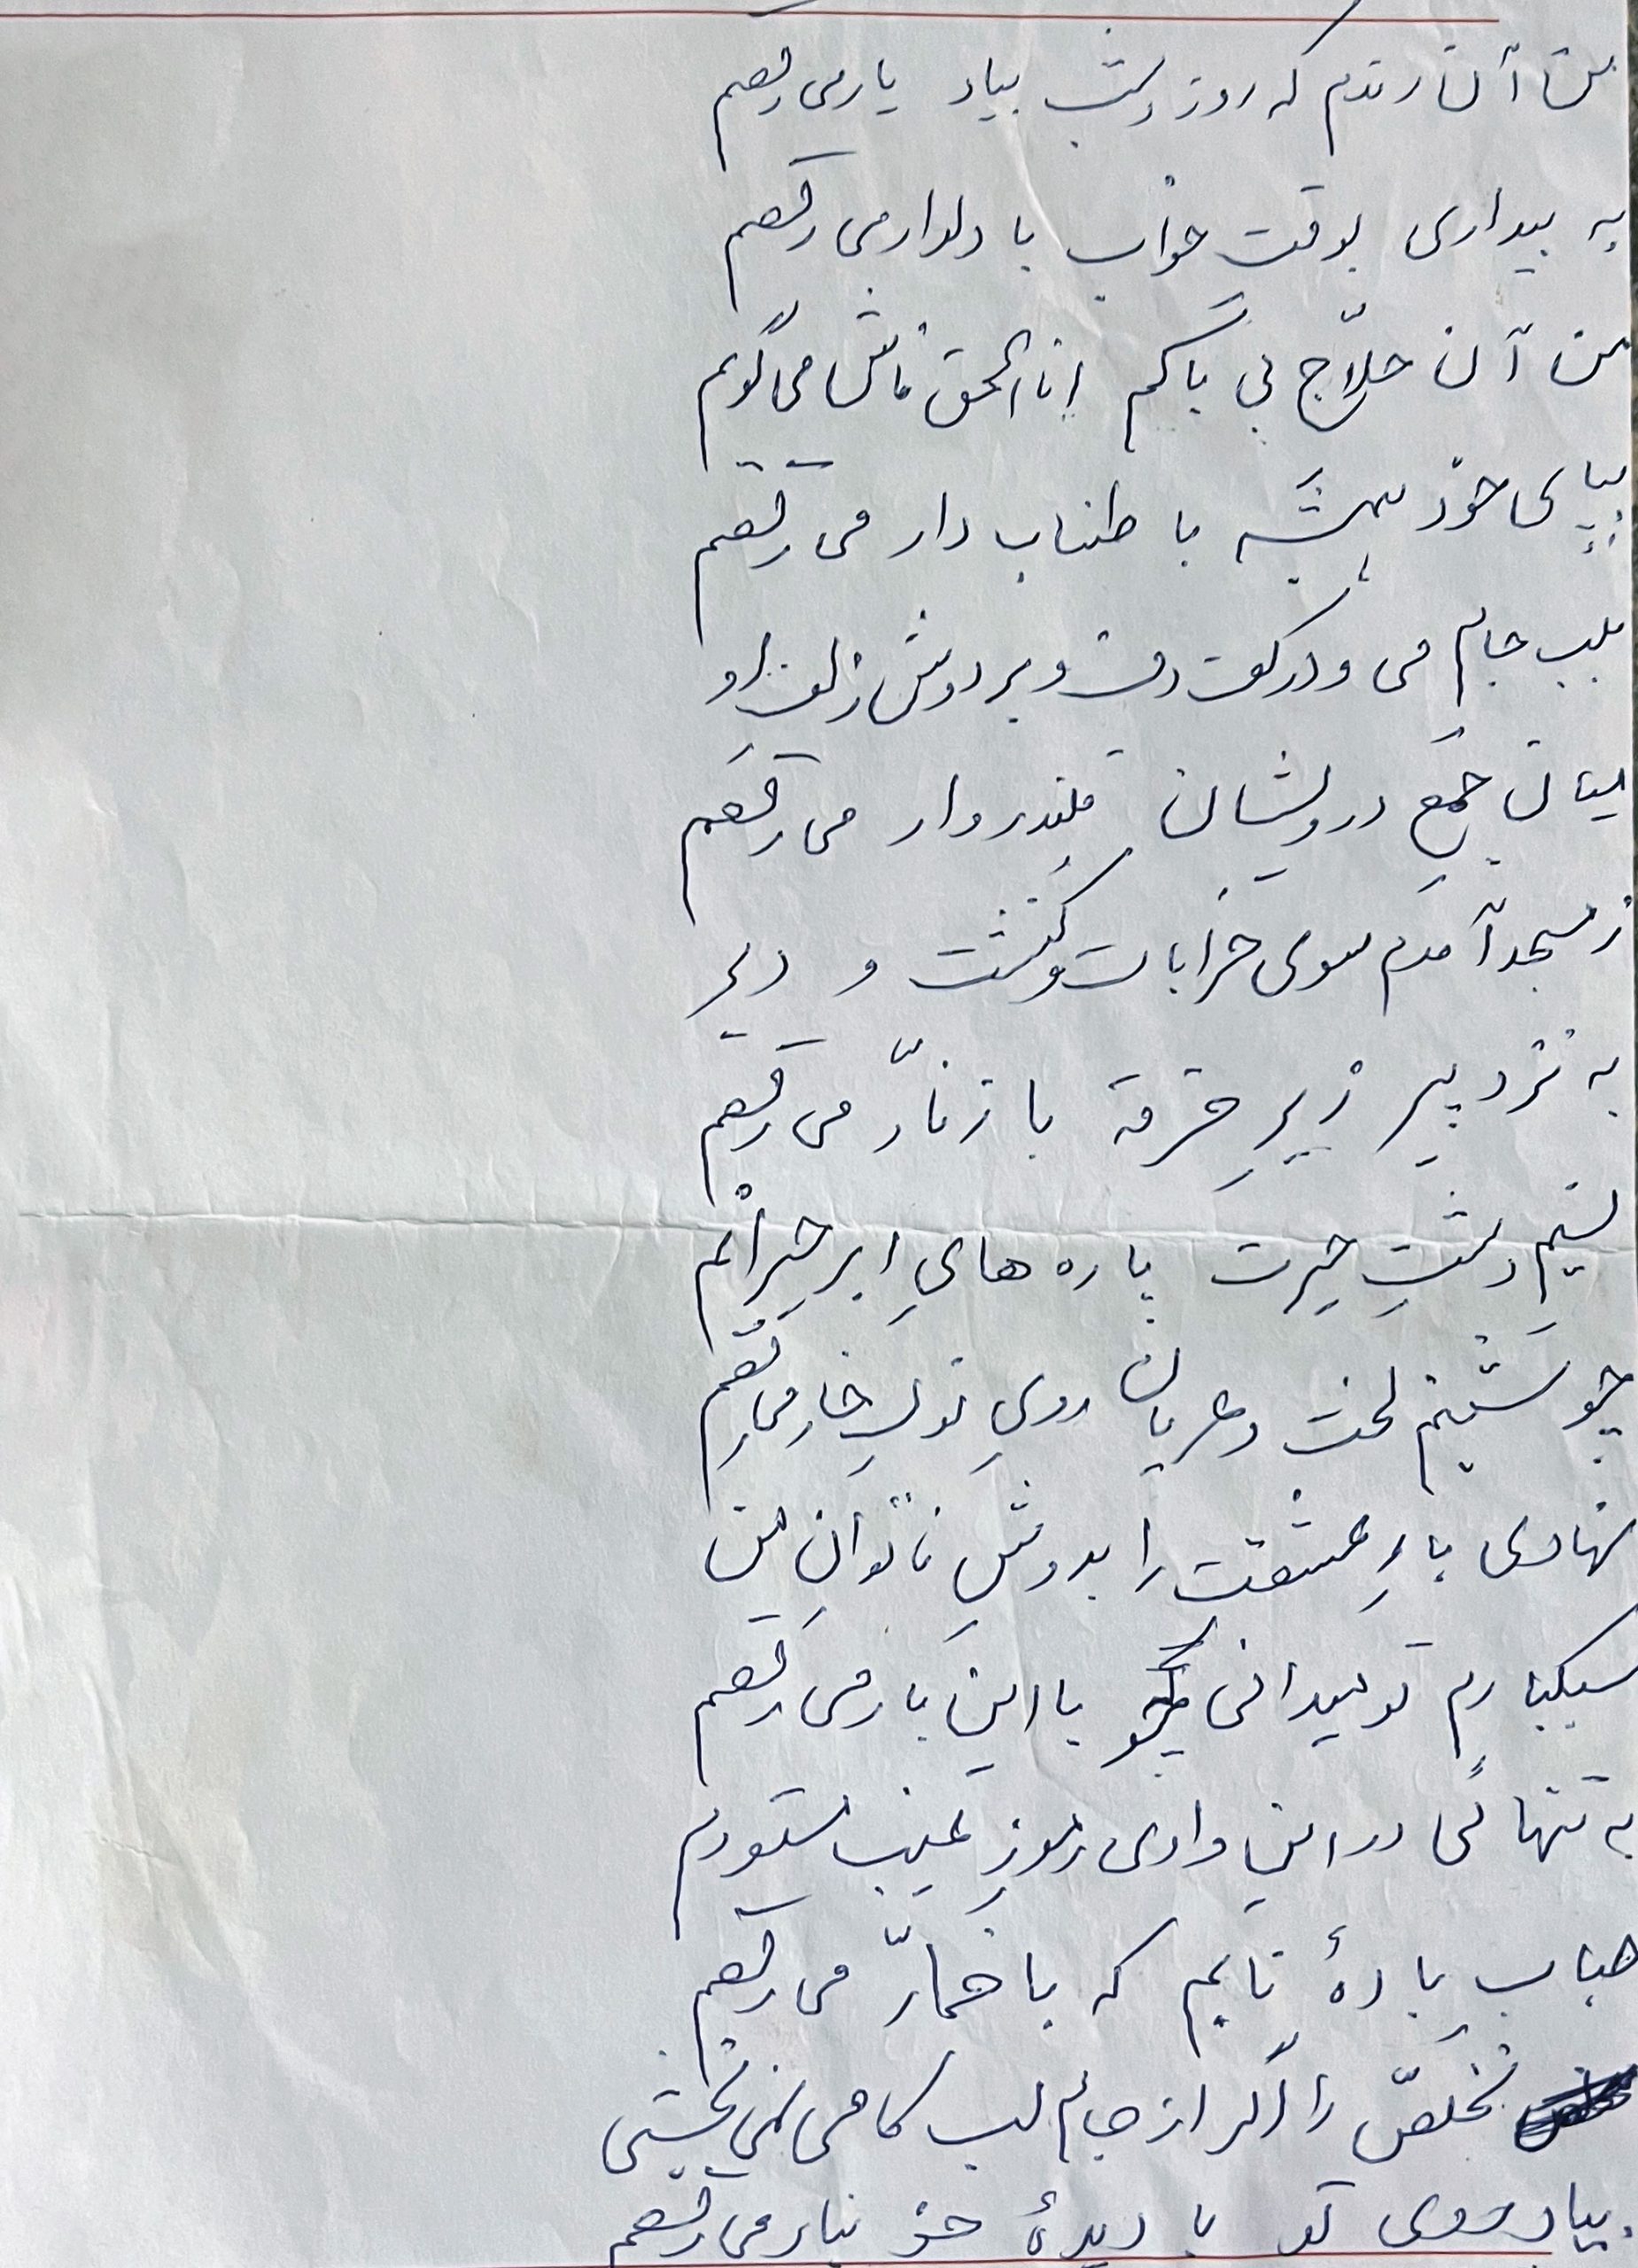 من آن رندم که روز و شب بیاد یار می رقصم
به بیداری بوقت خواب با دلدار می رقصم
من آن حلّاج بی باکم اناالحق فاش می گویم
بپای خود همیشه با طناب دار می رقصم
بلب جام می و در کف دف و بر دوش زلف او
میان جمع درویشان قلندروار می رقصم
ز مسجد آمدم سوی خرابات و کنشت و دیر
به نزد پیر زیرِ خرقه با زنّار می رقصم
نسیم دشتِ حیرت پاره هایِ ابر حیرانم
چو شبنم لخت و عریان رویِ نوکِ خار می رقصم
نهادی بارِ عشقت را بدوشِ ناتوانِ من
سبکبارم تو میدانی چو با این بار می رقصم
به تنهائی در این وادی رموزِ غیب مستورم
حباب بادهٔ نابم که با خمّار می رقصم
تخلّص را اگر از جام لب کامی نمی بخشی
بیاد روی تو با دیدهٔ خونبار می رقصم